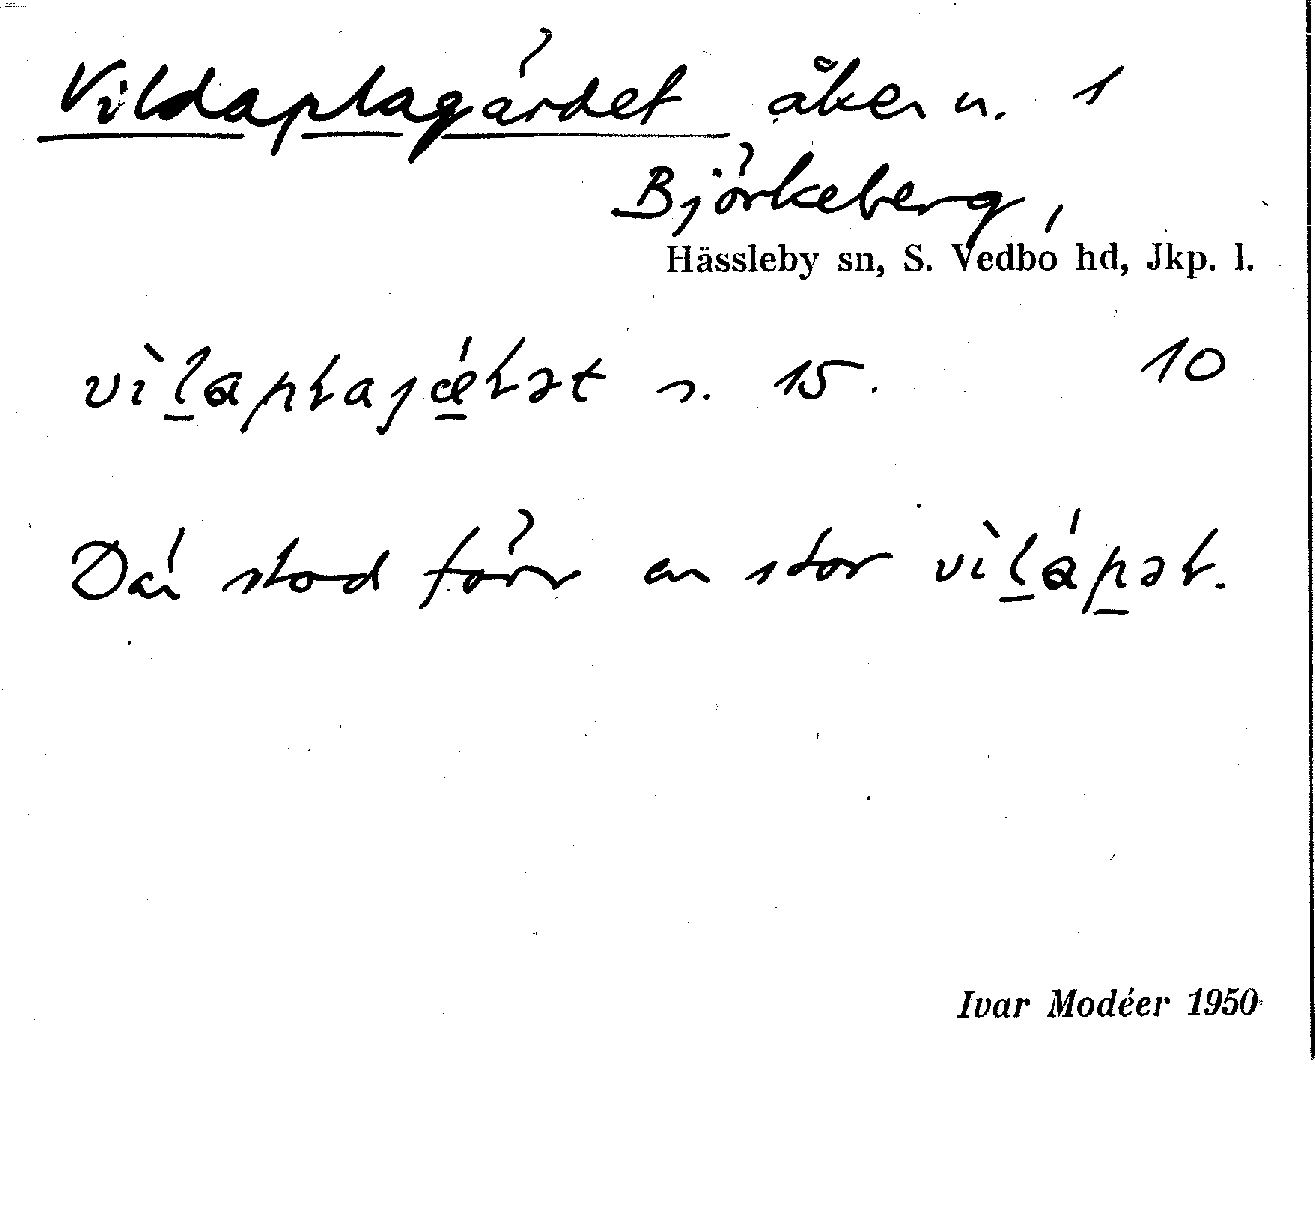 Vildaplagärdet åker n. 1
Björkeberg,
Hässleby sn, S. Vedbo hd, Jkp. l.
s. 15. 10
Där stod förr en stor
Ivar Modéer 1950